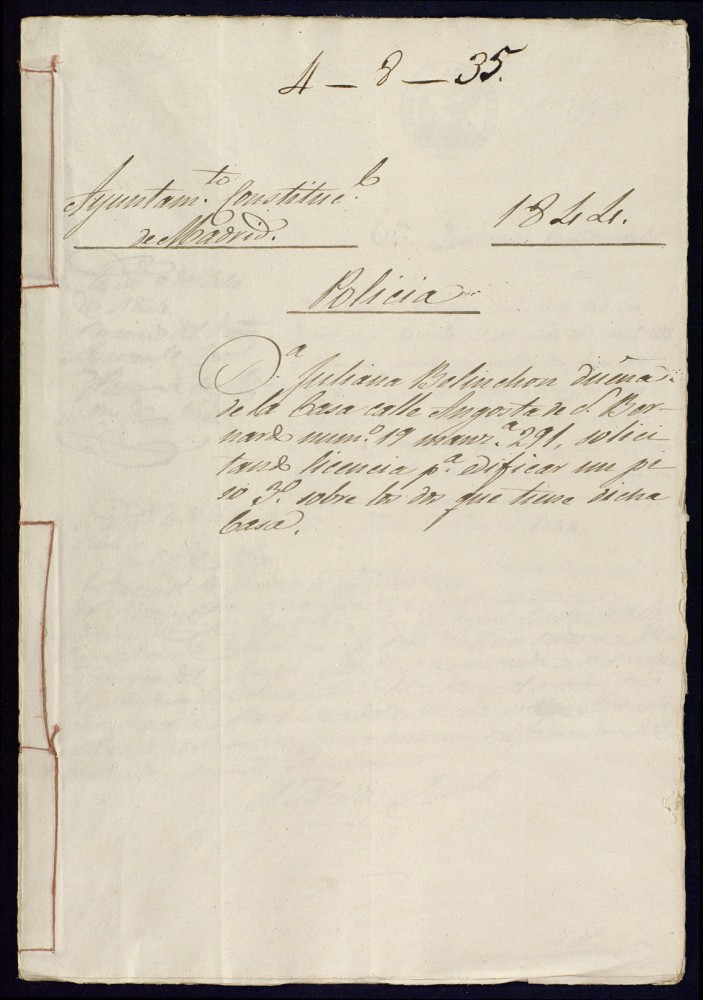 4 - 8 - 35.
Ayuntam.to Constituc.l
de Madrid.
1844.
Policia
D.a Juliana Bolinchon dueña
de la Casa calle Angosta de S. Ber-
nardo num.o 19 manz.a 291, solici
tando licencia p.a dificar un pi
so 3.o sobre los dos que tiene dicha
Casa.